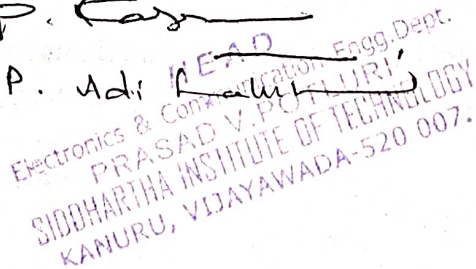 P.
P. Adi
HEAD
Electronics & Communication Engg.Dept.
PRASAD V. POTLURI
SIDDHARTHA INSTITUTE OF TECHNOLOGY
KANURU, VIJAYAWADA-520 007.